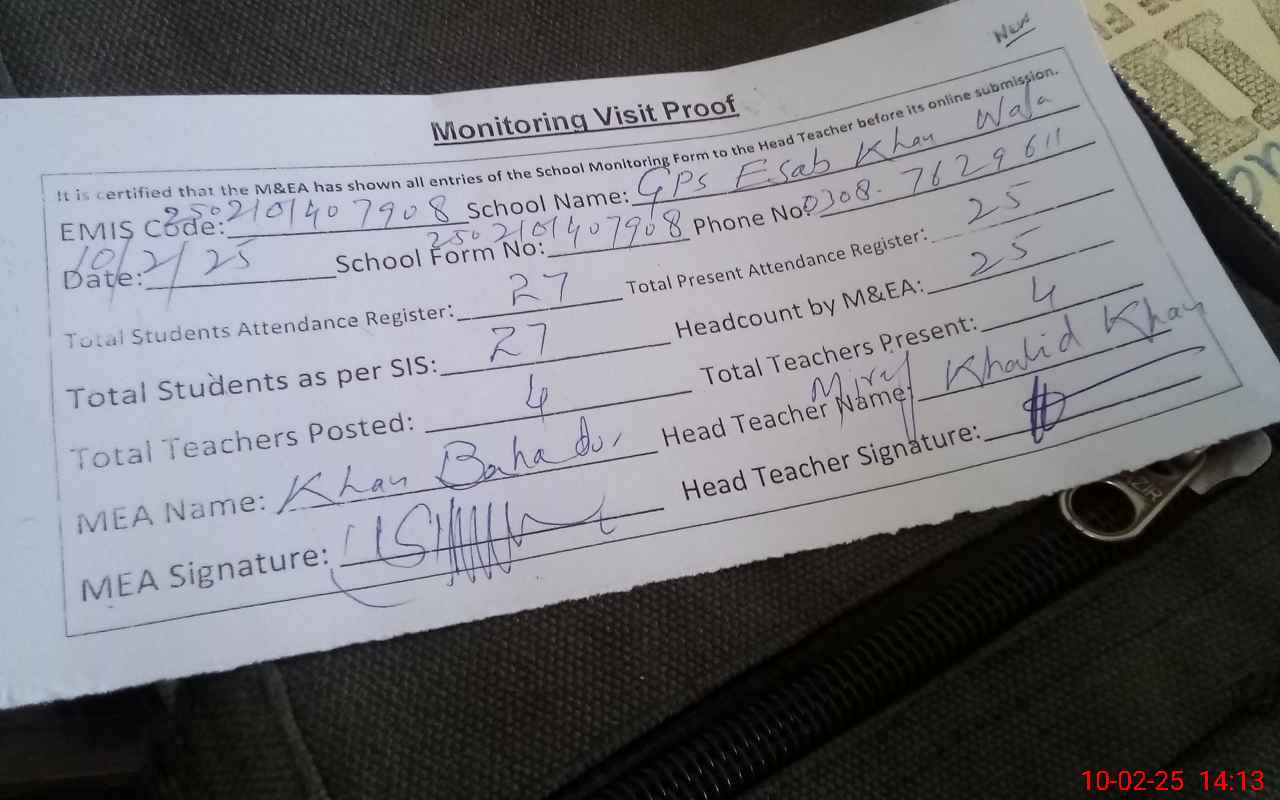 New
Monitoring Visit Proof
It is certified that the M&EA has shown all entries of the School Monitoring Form to the Head Teacher before its online submission.
EMIS Code: 250210101407908 School Name: GPS Esab Khan Wala
Date: 10/2/25 School Form No: 250210101407908 Phone No: 0308-7629611
Total Students Attendance Register: 27 Total Present Attendance Register: 25
Total Students as per SIS: 27 Headcount by M&EA: 25
Total Teachers Posted: 4 Total Teachers Present: 4
MEA Name: Khan Bahadur Head Teacher Name: Khalid Khan
MEA Signature: Head Teacher Signature:
10-02-25 14:13